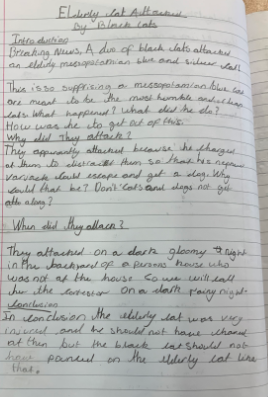 Elderly cat Attacked
by Black cats
Introduction
Breaking News, A duo of black cats attacked
an eldily mesopotamian blue and silver cat.
This is so suffrising a mesopotamian blue cat
are meant to be the most humble and
cats. What happened? What did he do?
How was he to get out of this.
Why did They attack?
They apparantly attacked because he charged
at them to distract them so that his
could escape and get a dog. Why
would that be? Don't cats and dogs not get
along?
When did they attack?
They attacked on a dark gloomy night
in the backyard of a persons house who
was not at the house so we will call
him the on a dark rainy night.
Conclusion
In conclusion the elderly cat was very
injured and he should not have charged
at them but the black cat should not
have on the elderly cat like
that.